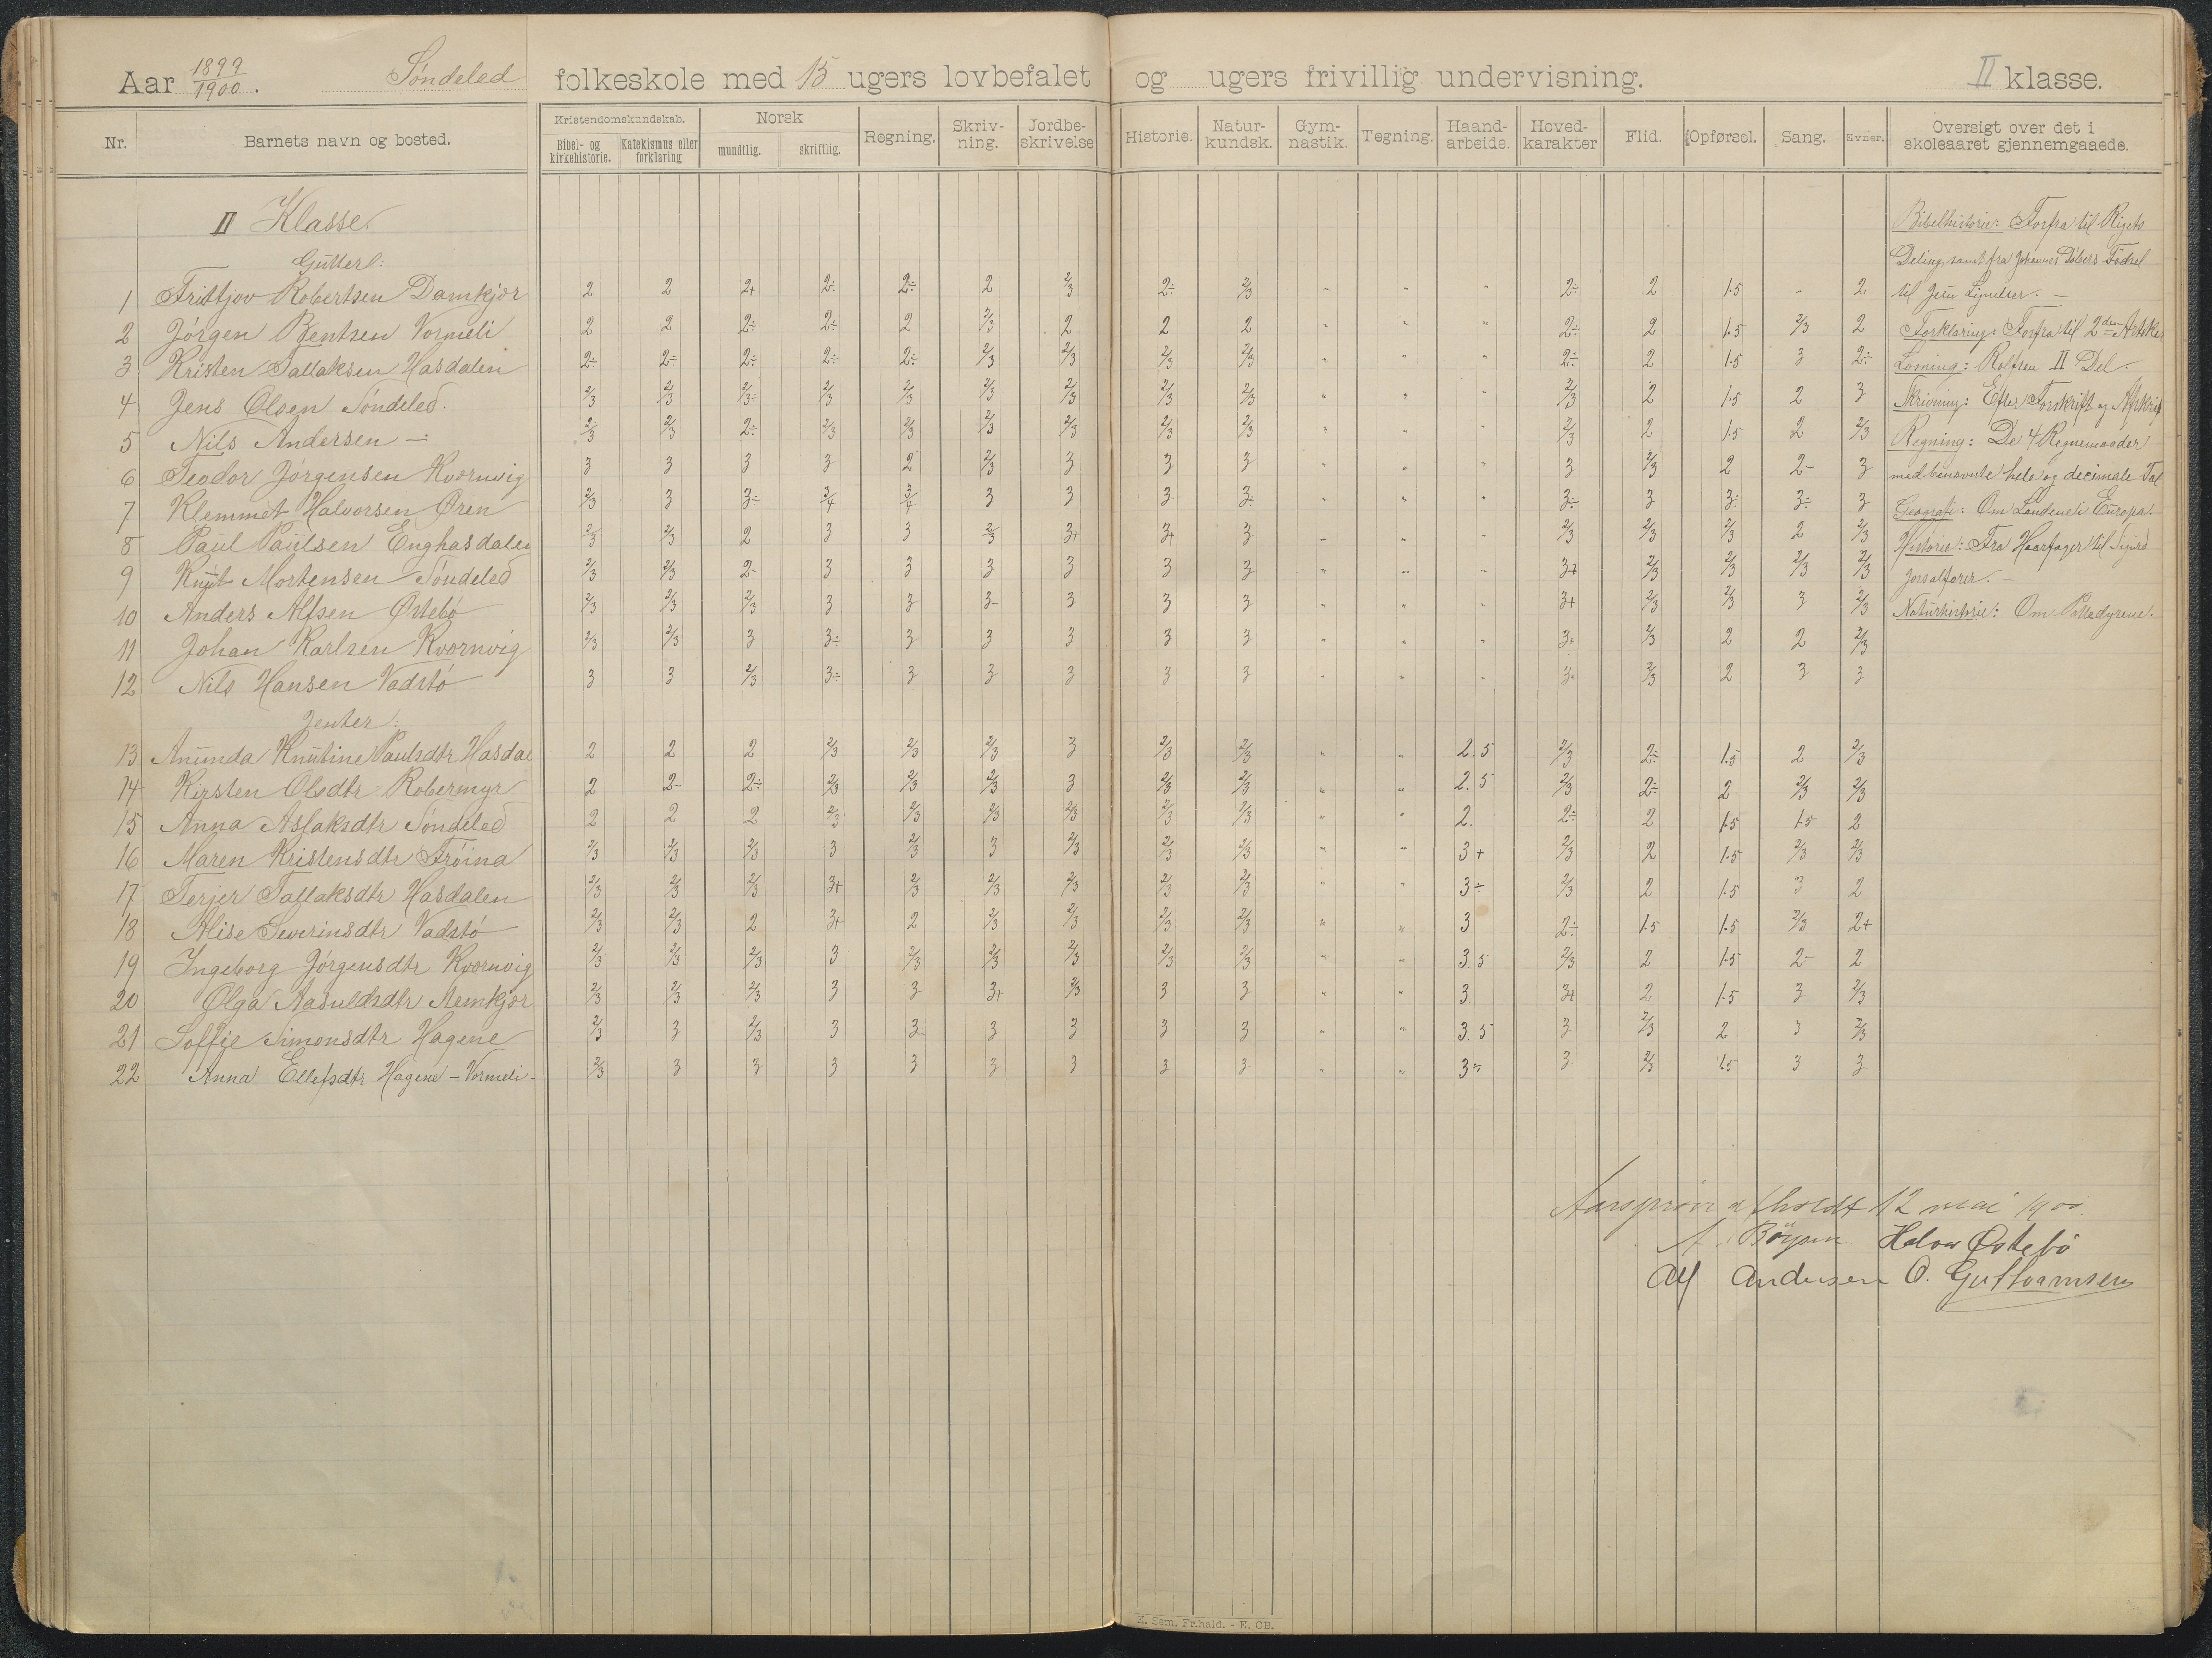 Aar 1899/1900. Søndeled folkeskole med 15 ugers lovbefalet og ugers frivillig undervisning. II klasse.
Nr. Barnets navn og bosted. Kristendomskundskab. Bibel- og kirkehistorie. Katekismus eller forklaring Norsk mundtlig. skriftlig. Regning. Skrivning. Jordbeskrivelse Historie. Naturkundsk. Gymnastik. Tegning. Haandarbeide. Hovedkarakter Flid. Opførsel. Sang. Evner. Oversigt over det i skoleaaret gjennemgaaede.
II Klasse.
Gutter:
1 Fritfjov Robertsen Damkjær 2 2 2+ 2÷ 2÷ 2 2/3 2÷ 2/3 - " " 2÷ 2 1.5 - 2
2 Jörgen Bentsen Vormeli 2 2 2÷ 2÷ 2 2/3 2 2 2 " " " 2÷ 2 1.5 2/3 2
3 Kristen Tallaksen Hasdalen 2÷ 2÷ 2÷ 2÷ 2÷ 2/3 2/3 2/3 2/3 " " " 2÷ 2 1.5 3 2÷
4 Jens Olsen Söndeled. 2/3 2/3 2/3÷ 2/3 2/3 2/3 2/3 2/3 2/3 " " " 2/3 2 1.5 2 3
5 Nils Andersen — 2/3 2/3 2÷ 2/3 2/3 2/3 2/3 2/3 2/3 " " " 2/3 2 1.5 2 2/3
6 Teodor Jörgensen Kvernvig 3 3 3 3 2 2/3 3 3 3 " " " 3 2/3 2 2- 3
7 Klemmet Halvorsen Øren 2/3 3 3÷ 3/4 3/4 3 3 3 3÷ " " " 3÷ 3 3÷ 3÷ 3
8 Paul Paulsen Enghasdalen 2/3 2/3 2 3 3 2/3 3+ 3+ 3 " " " 2/3 2/3 2/3 2 2/3
9 Knut Mortensen Söndeled 2/3 2/3 2- 3 3 3 3 3 3 " " " 3+ 2/3 2/3 2/3 2/3
10 Anders Alfsen Østebö 2/3 2/3 2/3 3 3 3- 3 3 3 " " " 3+ 2/3 2/3 3 2/3
11 Johan Karlsen Kvornvig 2/3 2/3 3 3÷ 3 3 3 3 3 " " " 3+ 2/3 2 2 2/3
12 Nils Hansen Vadstö 3 3 2/3 3÷ 3 3 3 3 3 " " " 3- 2/3 2 3 3
Jenter:
13 Anunda Knutine Paulsdtr Hasdal 2 2 2 2/3 2/3 2/3 3 2/3 2/3 " " 2.5 2/3 2÷ 1.5 2 2/3
14 Kirsten Olsdtr Robermyr 2 2- 2÷ 2/3 2/3 2/3 3 2/3 2/3 " " 2.5 2/3 2÷ 2 2/3 2/3
15 Anna Aslaksdtr Söndeled 2 2 2 2/3 2/3 2/3 2/3 2/3 2/3 " " 2. 2÷ 2 1.5 1.5 2
16 Maren Kristensdtr Tröina 2/3 2/3 2/3 3 2/3 3 2/3 2/3 2/3 " " 3+ 2/3 2 1.5 2/3 2/3
17 Terjer Tallaksdtr Hasdalen 2/3 2/3 2/3 3+ 2/3 2/3 2/3 2/3 2/3 " " 3÷ 2/3 2 1.5 3 2
18 Alise Severinsdtr Vadstö 2/3 2/3 2 3+ 2 2/3 2/3 2/3 2/3 " " 3 2÷ 1.5 1.5 2/3 2+
19 Ingeborg Jörgensdtr Kvornvig 2/3 2/3 2/3 3 2/3 2/3 2/3 2/3 2/3 " " 3.5 2/3 2 1.5 2- 2
20 Olga Aasuldsdtr Nemkjør 2/3 2/3 2/3 3 3 3+ 2/3 3 3 " " 3. 3+ 2 1.5 3 2/3
21 Soffie Simonsdtr Hagene 2/3 3 2/3 3 3÷ 3 3 3 3 " " 3.5 3 2/3 2 3 2/3
22 Anna Ellefsdtr Hagene - Vormeli - 2/3 3 3 3 3 3 3 3 3 " " 3÷ 3 2/3 1.5 3 3
Bibelhistorie: Forfra til Rigets
Deling, samt fra Johannes Døbers Födsel
til Jesu Lignelser. —
Forklaring: Forfra til 2den Artikel
Læsning: Rolfsen II Del.
Skrivning: Efter Forskrift og Afskrift
Regning: De 4 Regnemaader
med benævnte hele og decimale Tal
Geografi: Om Landene i Europa.
Historie: Fra Haarfager til Sigurd
Jorsalfarer.
Naturhistorie: Om Pattedyrene.
Aarsprøve afholdt 12 mai 1900.
A. Börsen Halvor Østebö
Alf Andersen O. Guttormsen
E. Sem. Fr.hald. - E. CB.